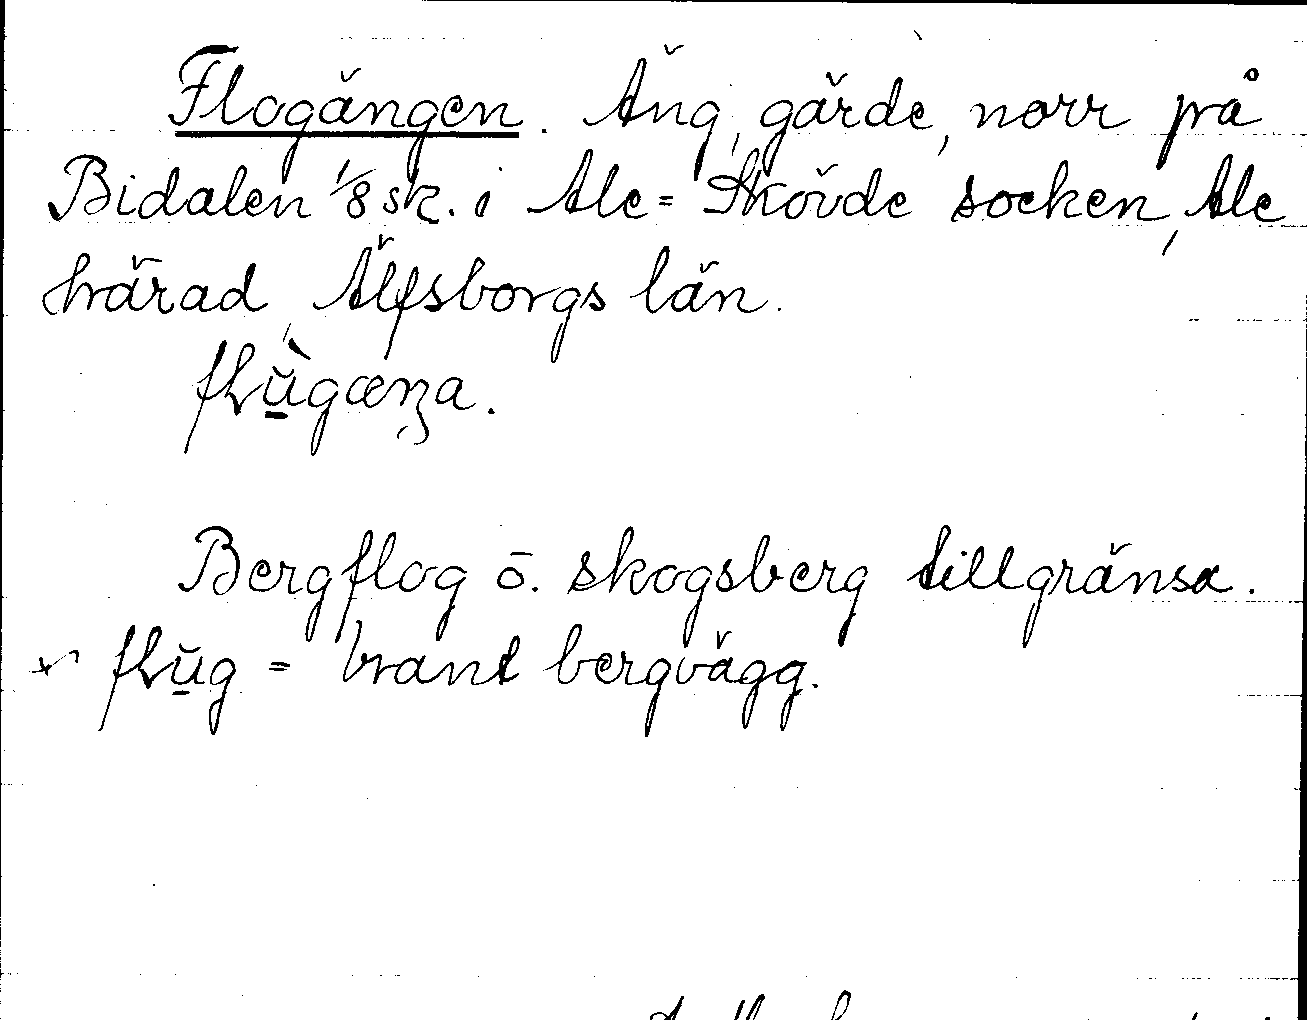 Flogängen. Äng, gärde, norr på
Bidalen 1/8 sk. i Ale=Skövde socken, Ale
härad, Älfsborgs län.
flù̱gæŋa.
Bergflog o. skogsberg tillgränsa.
flu̱g = brant bergvägg.